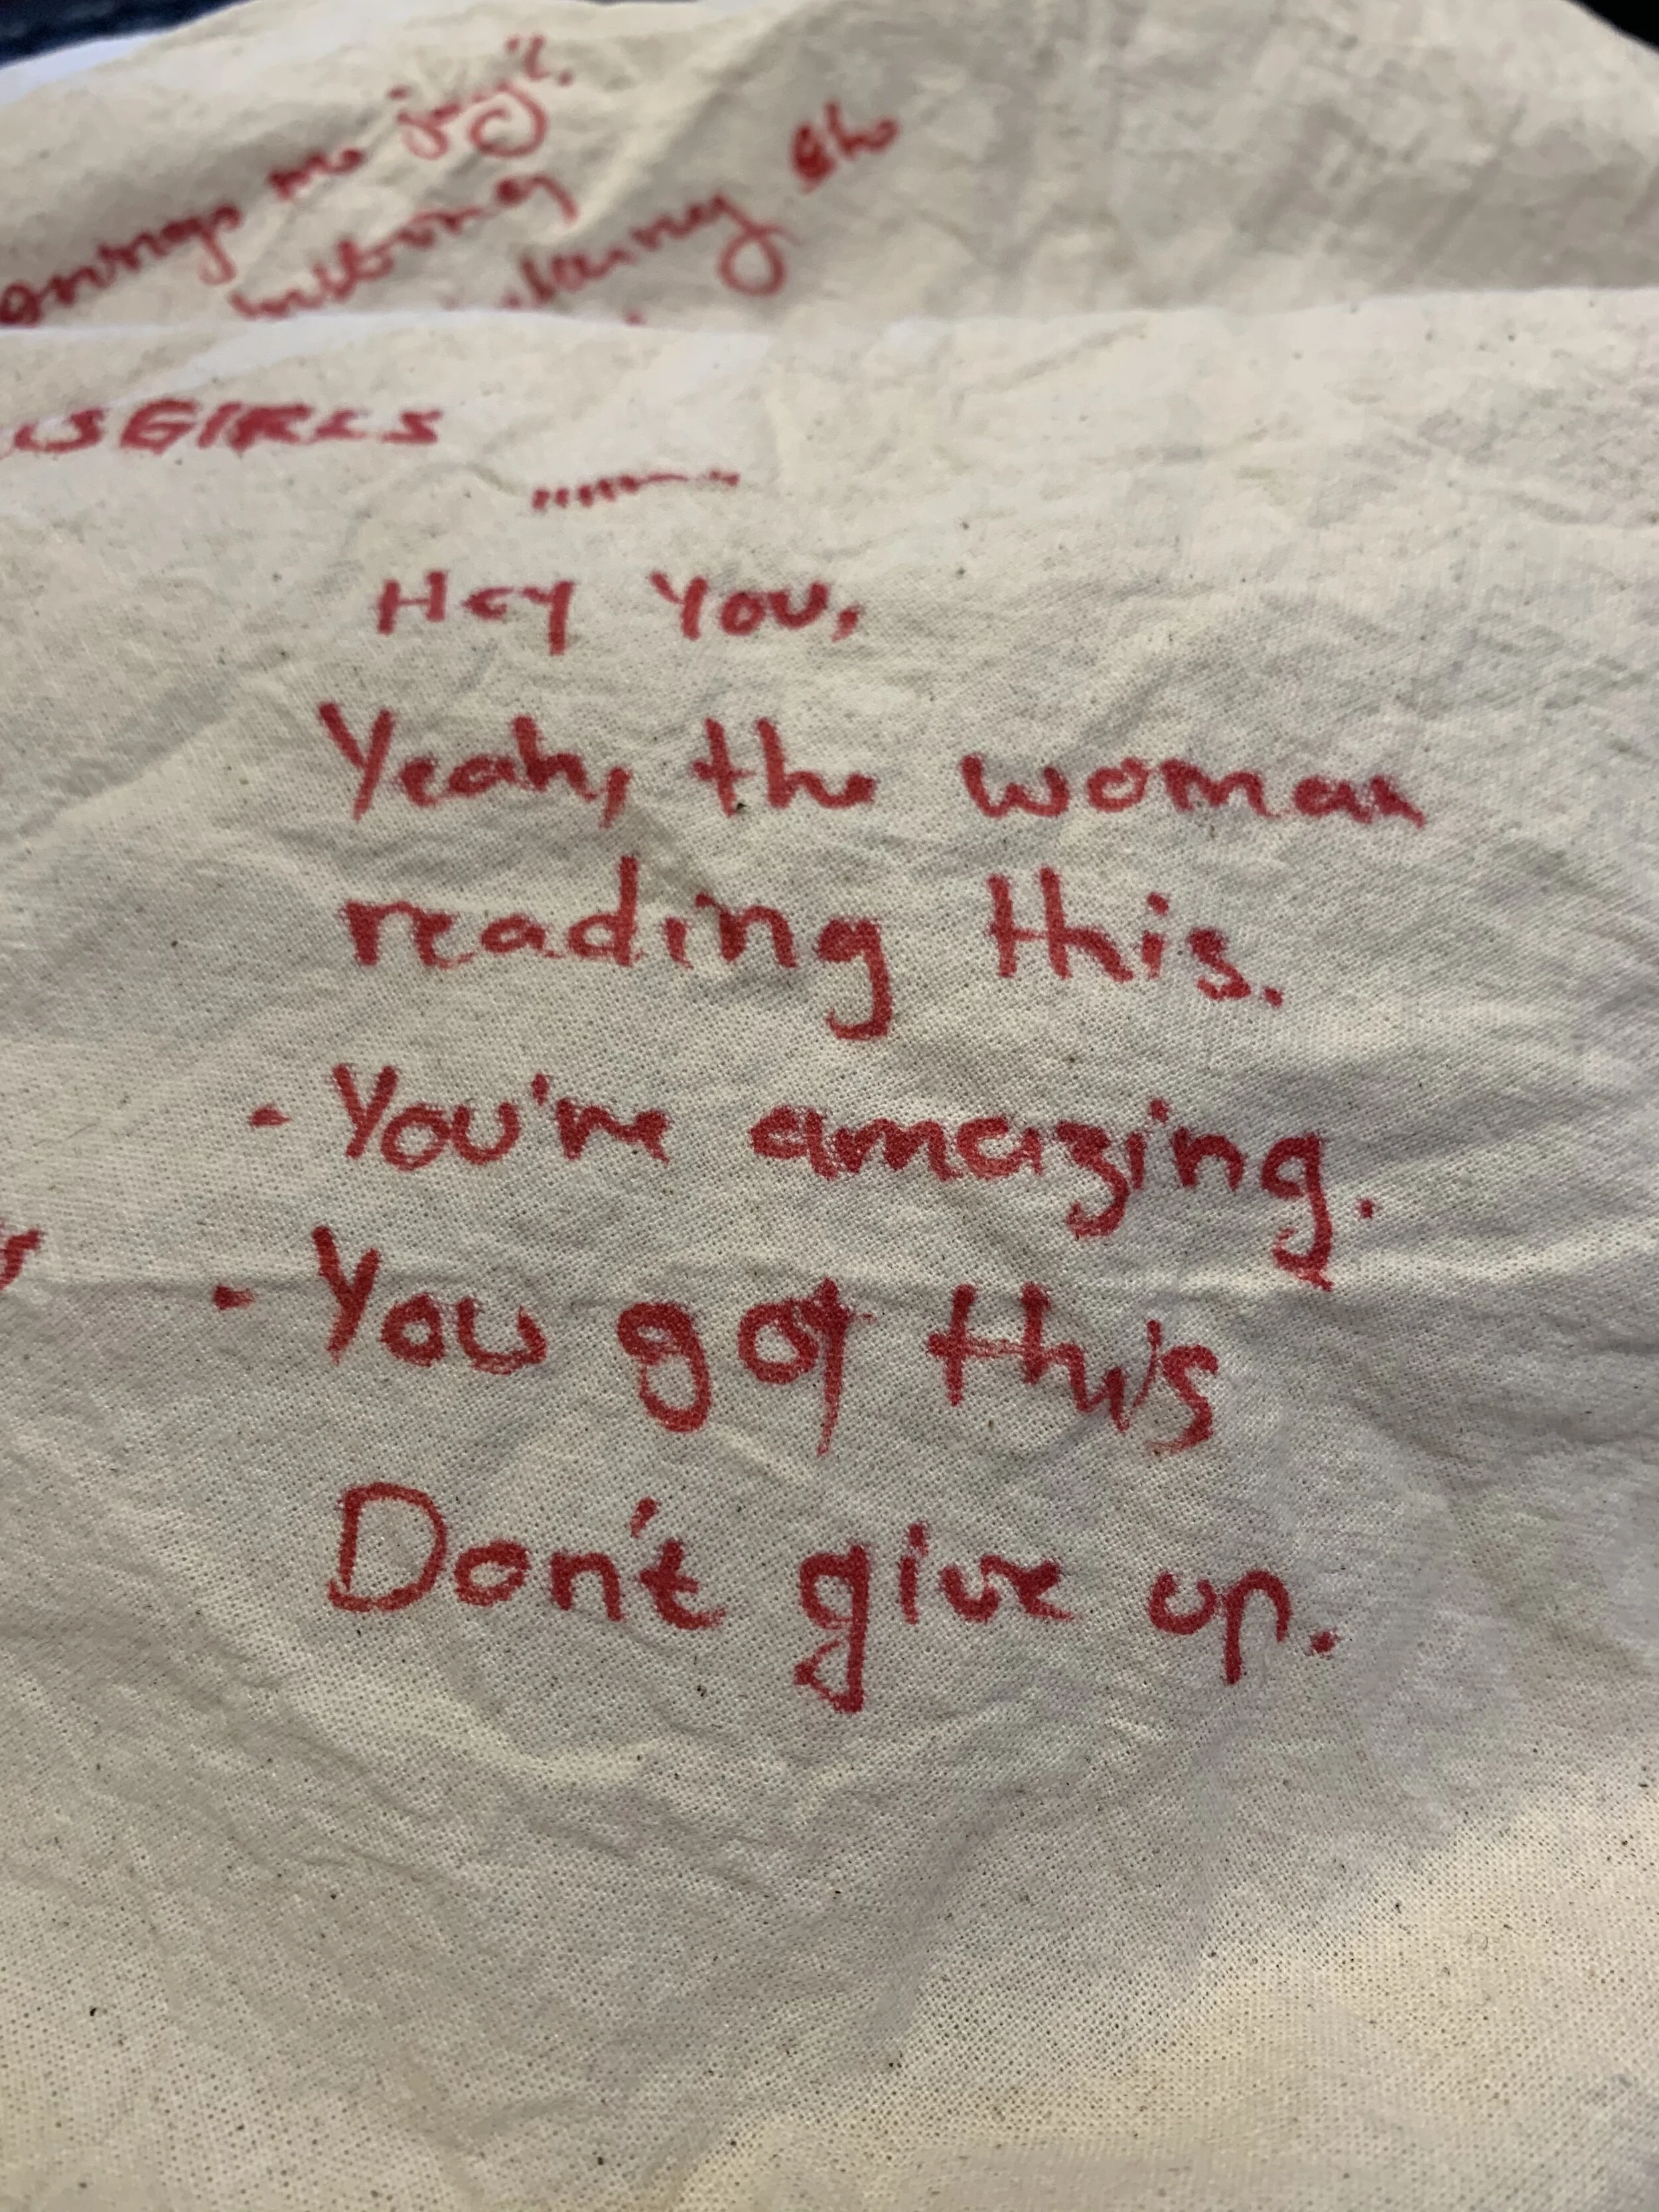 me joy".
GIRLS
Hey You,
Yeah, the woman
reading this.
- You're amazing.
- You got this
Don't give up.